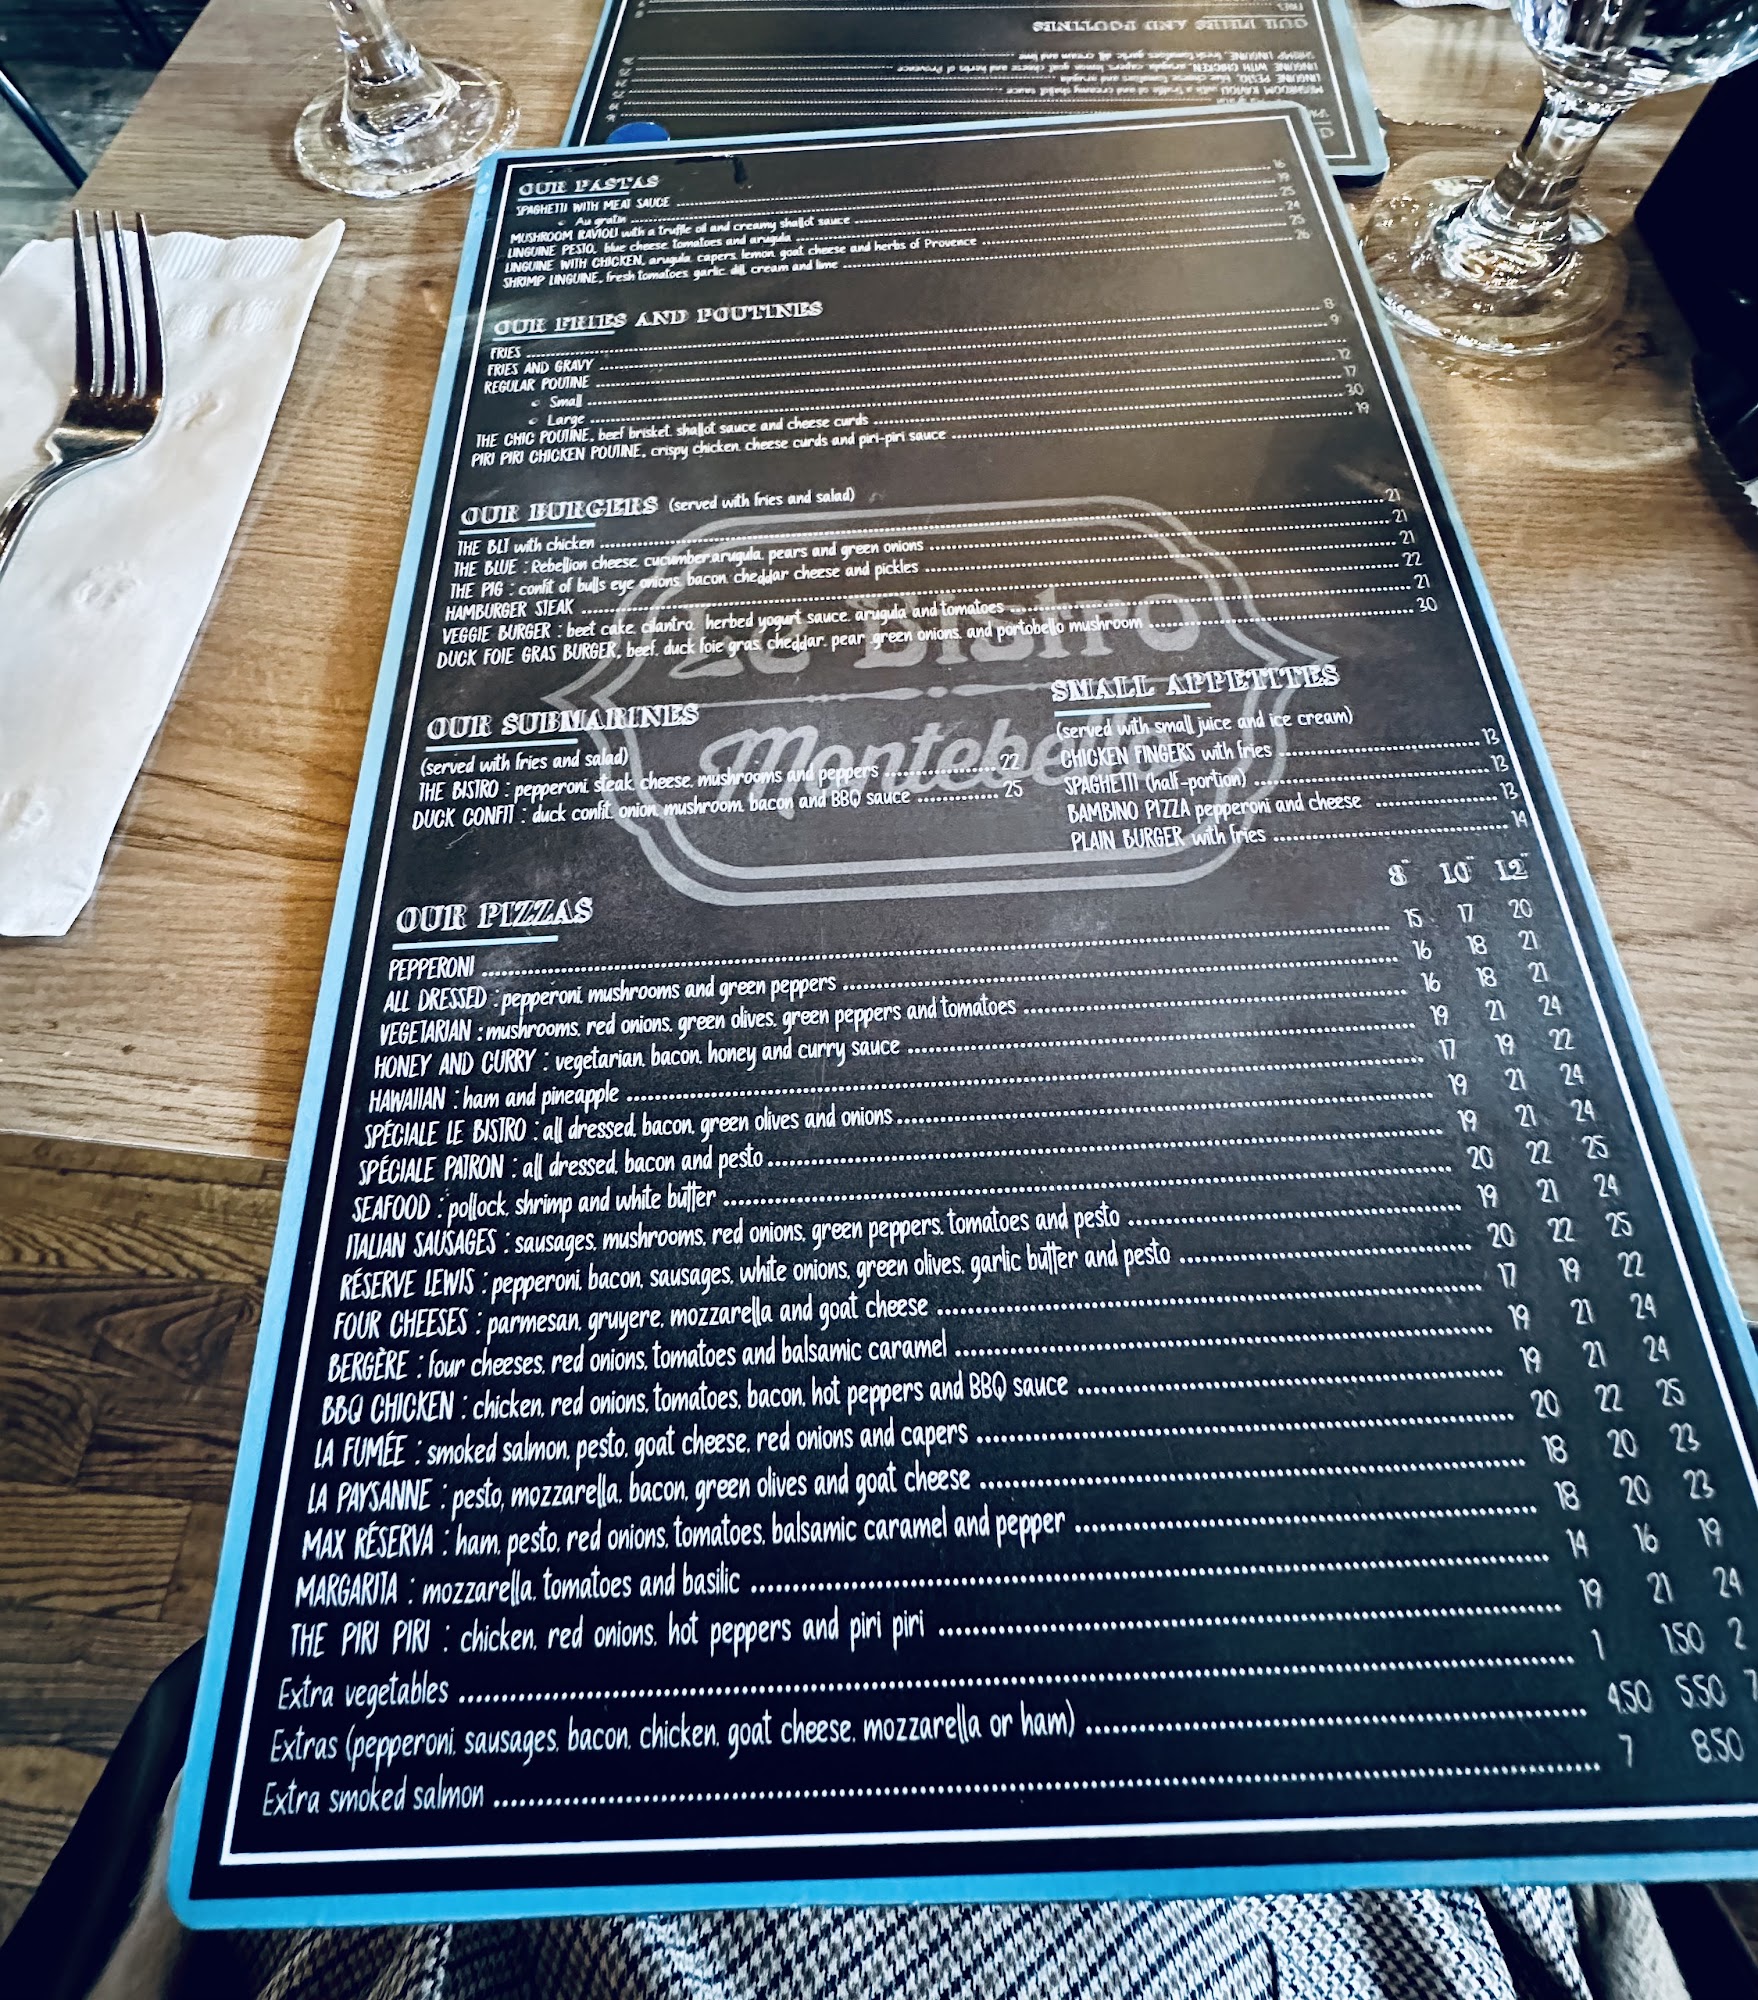 OUR PASTAS
SPAGHETTI WITH MEAT SAUCE 16
Au gratin 19
MUSHROOM RAVIOLI with a truffle oil and creamy shallot sauce 25
LINGUINE PESTO, blue cheese, tomatoes and arugula 24
LINGUINE WITH CHICKEN, arugula, capers, lemon, goat cheese and herbs of Provence 25
SHRIMP LINGUINE, fresh tomatoes, garlic, dill, cream and lime 26
OUR FRIES AND POUTINES
FRIES 8
FRIES AND GRAVY 9
REGULAR POUTINE
Small 12
Large 17
THE CHIC POUTINE, beef brisket, shallot sauce and cheese curds 30
PIRI PIRI CHICKEN POUTINE, crispy chicken, cheese curds and piri-piri sauce 19
OUR BURGERS (served with fries and salad)
THE BLT with chicken 21
THE BLUE : Rebellion cheese, cucumber, arugula, pears and green onions 21
THE PIG : confit of bulls eye onions, bacon, cheddar cheese and pickles 21
HAMBURGER STEAK 22
VEGGIE BURGER : beet cake, cilantro, herbed yogurt sauce, arugula and tomatoes 21
DUCK FOIE GRAS BURGER, beef, duck foie gras, cheddar, pear, green onions, and portobello mushroom 30
Le Bistro
OUR SUBMARINES
(served with fries and salad)
THE BISTRO : pepperoni, steak, cheese, mushrooms and peppers 22
DUCK CONFIT : duck confit, onion, mushroom, bacon and BBQ sauce 25
SMALL APPETITES
(served with small juice and ice cream)
CHICKEN FINGERS with fries 13
SPAGHETTI (half-portion) 13
BAMBINO PIZZA pepperoni and cheese 13
PLAIN BURGER with fries 14
OUR PIZZAS 8" 10" 12"
PEPPERONI 15 17 20
ALL DRESSED : pepperoni, mushrooms and green peppers 16 18 21
VEGETARIAN : mushrooms, red onions, green olives, green peppers and tomatoes 16 18 21
HONEY AND CURRY : vegetarian, bacon, honey and curry sauce 19 21 24
HAWAIIAN : ham and pineapple 17 19 22
SPÉCIALE LE BISTRO : all dressed, bacon, green olives and onions 19 21 24
SPÉCIALE PATRON : all dressed, bacon and pesto 19 21 24
SEAFOOD : pollock, shrimp and white butter 20 22 25
ITALIAN SAUSAGES : sausages, mushrooms, red onions, green peppers, tomatoes and pesto 19 21 24
RÉSERVE LEWIS : pepperoni, bacon, sausages, white onions, green olives, garlic butter and pesto 20 22 25
FOUR CHEESES : parmesan, gruyere, mozzarella and goat cheese 17 19 22
BERGÈRE : four cheeses, red onions, tomatoes and balsamic caramel 19 21 24
BBQ CHICKEN : chicken, red onions, tomatoes, bacon, hot peppers and BBQ sauce 19 21 24
LA FUMÉE : smoked salmon, pesto, goat cheese, red onions and capers 20 22 25
LA PAYSANNE : pesto, mozzarella, bacon, green olives and goat cheese 18 20 23
MAX RÉSERVA : ham, pesto, red onions, tomatoes, balsamic caramel and pepper 18 20 23
MARGARITA : mozzarella, tomatoes and basilic 14 16 19
THE PIRI PIRI : chicken, red onions, hot peppers and piri piri 19 21 24
Extra vegetables 1 1.50 2
Extras (pepperoni, sausages, bacon, chicken, goat cheese, mozzarella or ham) 4.50 5.50
Extra smoked salmon 7 8.50